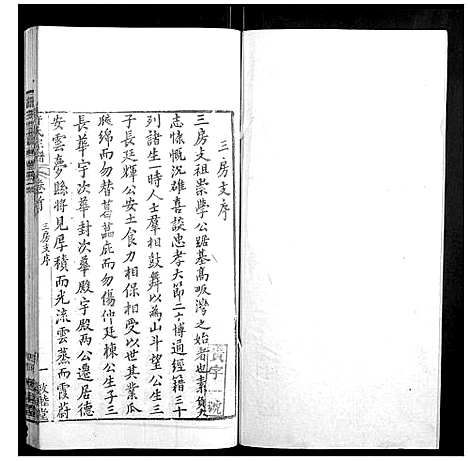 三房支序
三房支祖崇學公踞基高畈灣之始者也素負大
志慷慨沉雄喜談忠孝大節二十博通經籍三十
列諸生一時人士羣相鼓舞以為山斗望公生三
子長廷輝公安土食力相保相受以世其業瓜
瓞綿而勿替葛藟庇而勿傷仲廷棟公生子三
長華宇次華封次華殿宇殿兩公遷居德
安雲夢縣將見厚積而光流雲蒸而霞蔚
氏宗譜 卷首 三房支序 一 敦睦堂
字一號